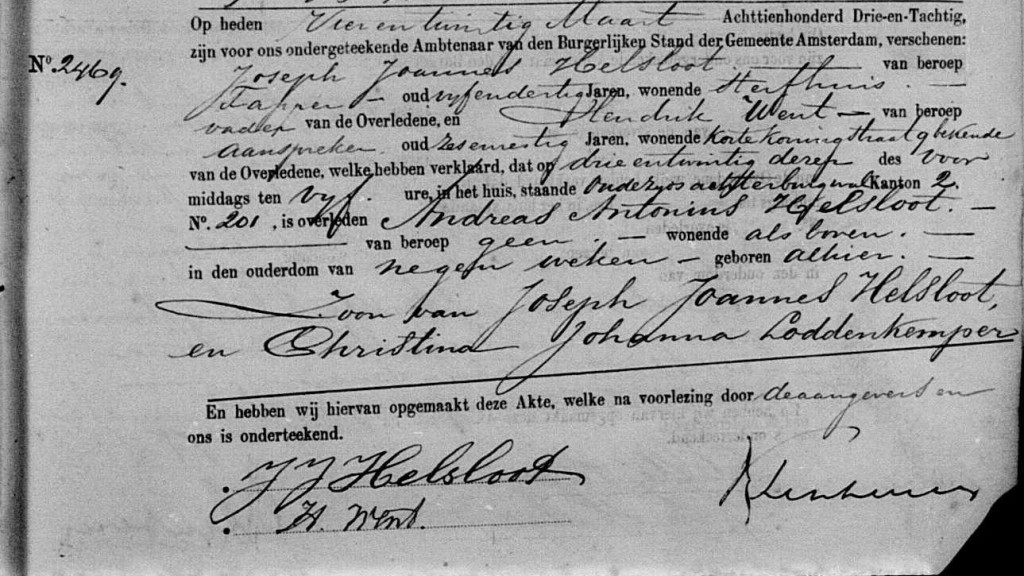 Op heden Vier en twintig Maart Achttienhonderd Drie-en-Tachtig,
zijn voor ons ondergeteekende Ambtenaar van den Burgerlijken Stand der Gemeente Amsterdam, verschenen:
No. 2469. Joseph Joannes Helsloot van beroep
Tapper — oud vyfendertig Jaren, wonende Sterfhuis. —
vader van de Overledene, en Hendrik Went — van beroep
aanspreker oud zesenestig Jaren, wonende Korte Koningstraat 9 bekende
van de Overledene, welke hebben verklaard, dat op drie entwintig dezer des voor
middags ten vyf. ure, in het huis, staande Oudezyds achterburgwal Kanton 2.
No. 201, is overleden Andreas Antonius Helsloot. —
van beroep geen. — wonende als boven. —
in den ouderdom van negen weken — geboren alhier. —
Zoon van Joseph Joannes Helsloot,
en Christina Johanna Loddenkemper
En hebben wij hiervan opgemaakt deze Akte, welke na voorlezing door de aangevers en
ons is onderteekend.
J J Helsloot
H. Went.